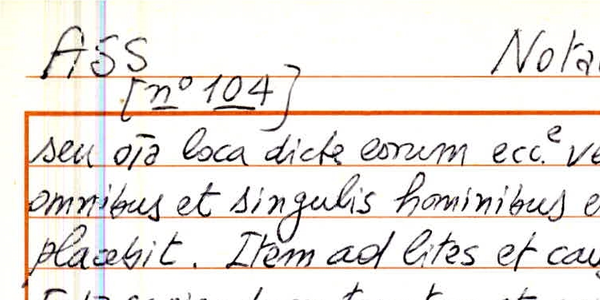 ASS Nota
[nº 104]
seu oīa loca dicte eorum ecc.e ve
omnibus et singulis hominibus e
placebit. Item ad lites et cau